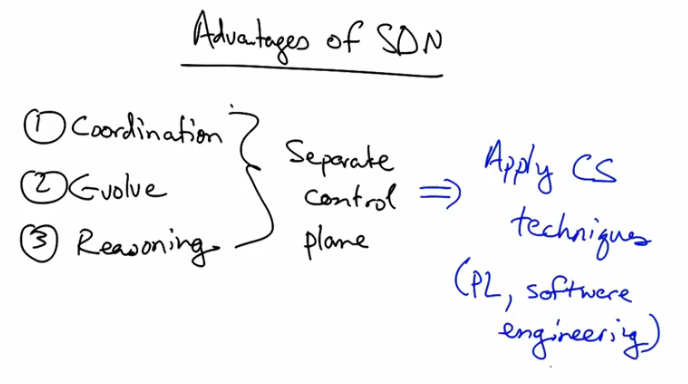 Advantages of SDN
① Coordination
② Evolve
③ Reasoning
Separate
control
plane
⇒ Apply CS
techniques
(PL, software
engineering)